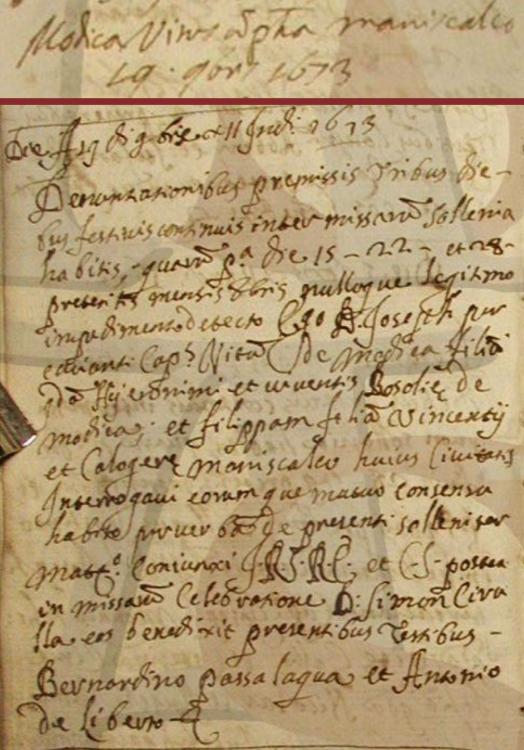 Modica Vitus et ph.a maniscalco
19 9bris 1673
Die 19 di 9bris 11 Indi: 1673
Denuntiationibus premissis tribus die-
bus festivis continuis inter missarū sollenia
habitis, quarū p.a die 15 - 22 - et 28 -
preteriti mensis 8bris nulloque legitimo
impedimento detecto Ego D. Joseph pur
Cap.s Vitū de Modica filiū
qd.ā Hyieronimi et viventis Rosolię de
modica, et filippam filiā Vincentij
et Calogerę maniscalco huius Civitatis
Interrogavi eorumque mutuo consensu
habito per verba de presenti solleniter
mat.o Coniunxi J.R.S.R.E. et C.S. postea
in missarū Celebratione D: Simon Cira
lla eos benedixit presentibus Testibus -
Bernardino passalaqua et Antonio
de Liberto